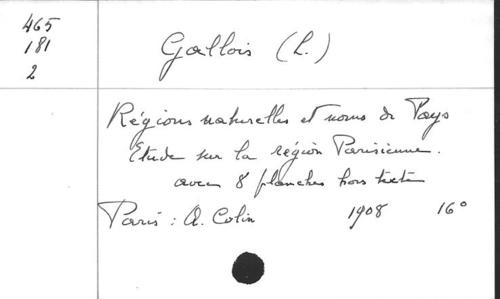 465
181
2
Gallois (L.)
Régions naturelles et noms de Pays
Etude sur la région Parisienne.
avec 8 planches hors texte
Paris : A. Colin 1908 16°